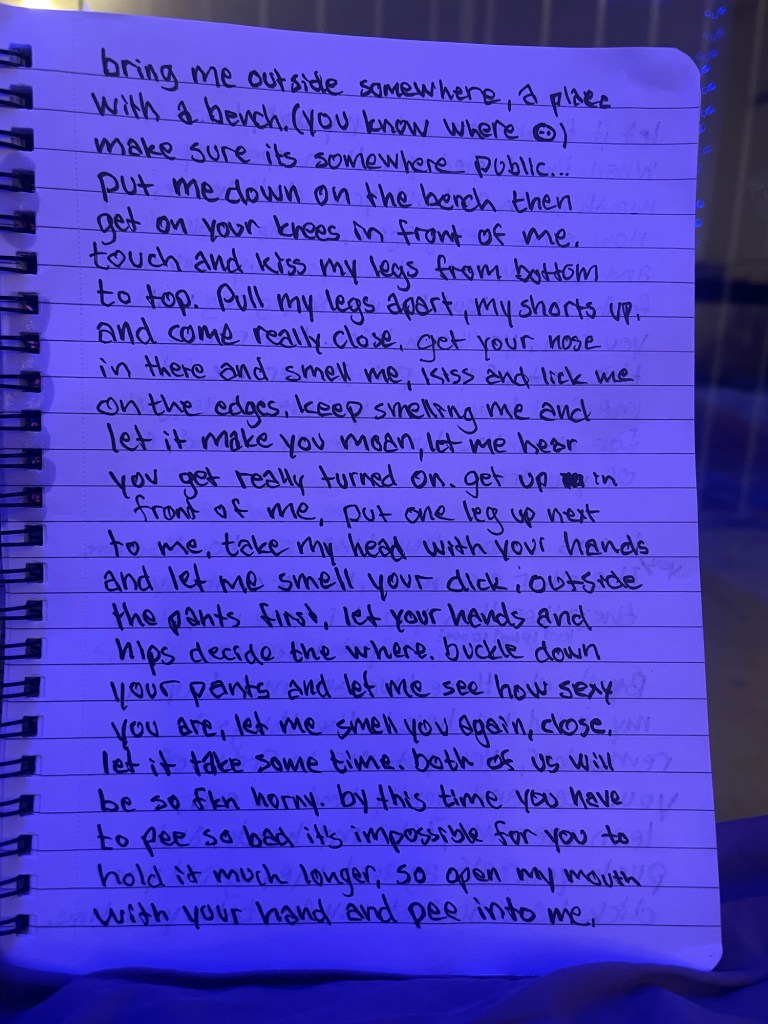 bring me outside somewhere, a place
with a bench. (you know where ☺)
make sure its somewhere public...
put me down on the bench then
get on your knees in front of me.
touch and kiss my legs from bottom
to top. Pull my legs apart, my shorts up.
and come really close. get your nose
in there and smell me, kiss and lick me
on the edges. keep smelling me and
let it make you moan, let me hear
you get really turned on. get up in
front of me, put one leg up next
to me, take my head with your hands
and let me smell your dick, outside
the pants first, let your hands and
hips decide the where. buckle down
your pants and let me see how sexy
you are, let me smell you again, close.
let it take some time. both of us will
be so fkn horny. by this time you have
to pee so bad it's impossible for you to
hold it much longer, so open my mouth
with your hand and pee into me.